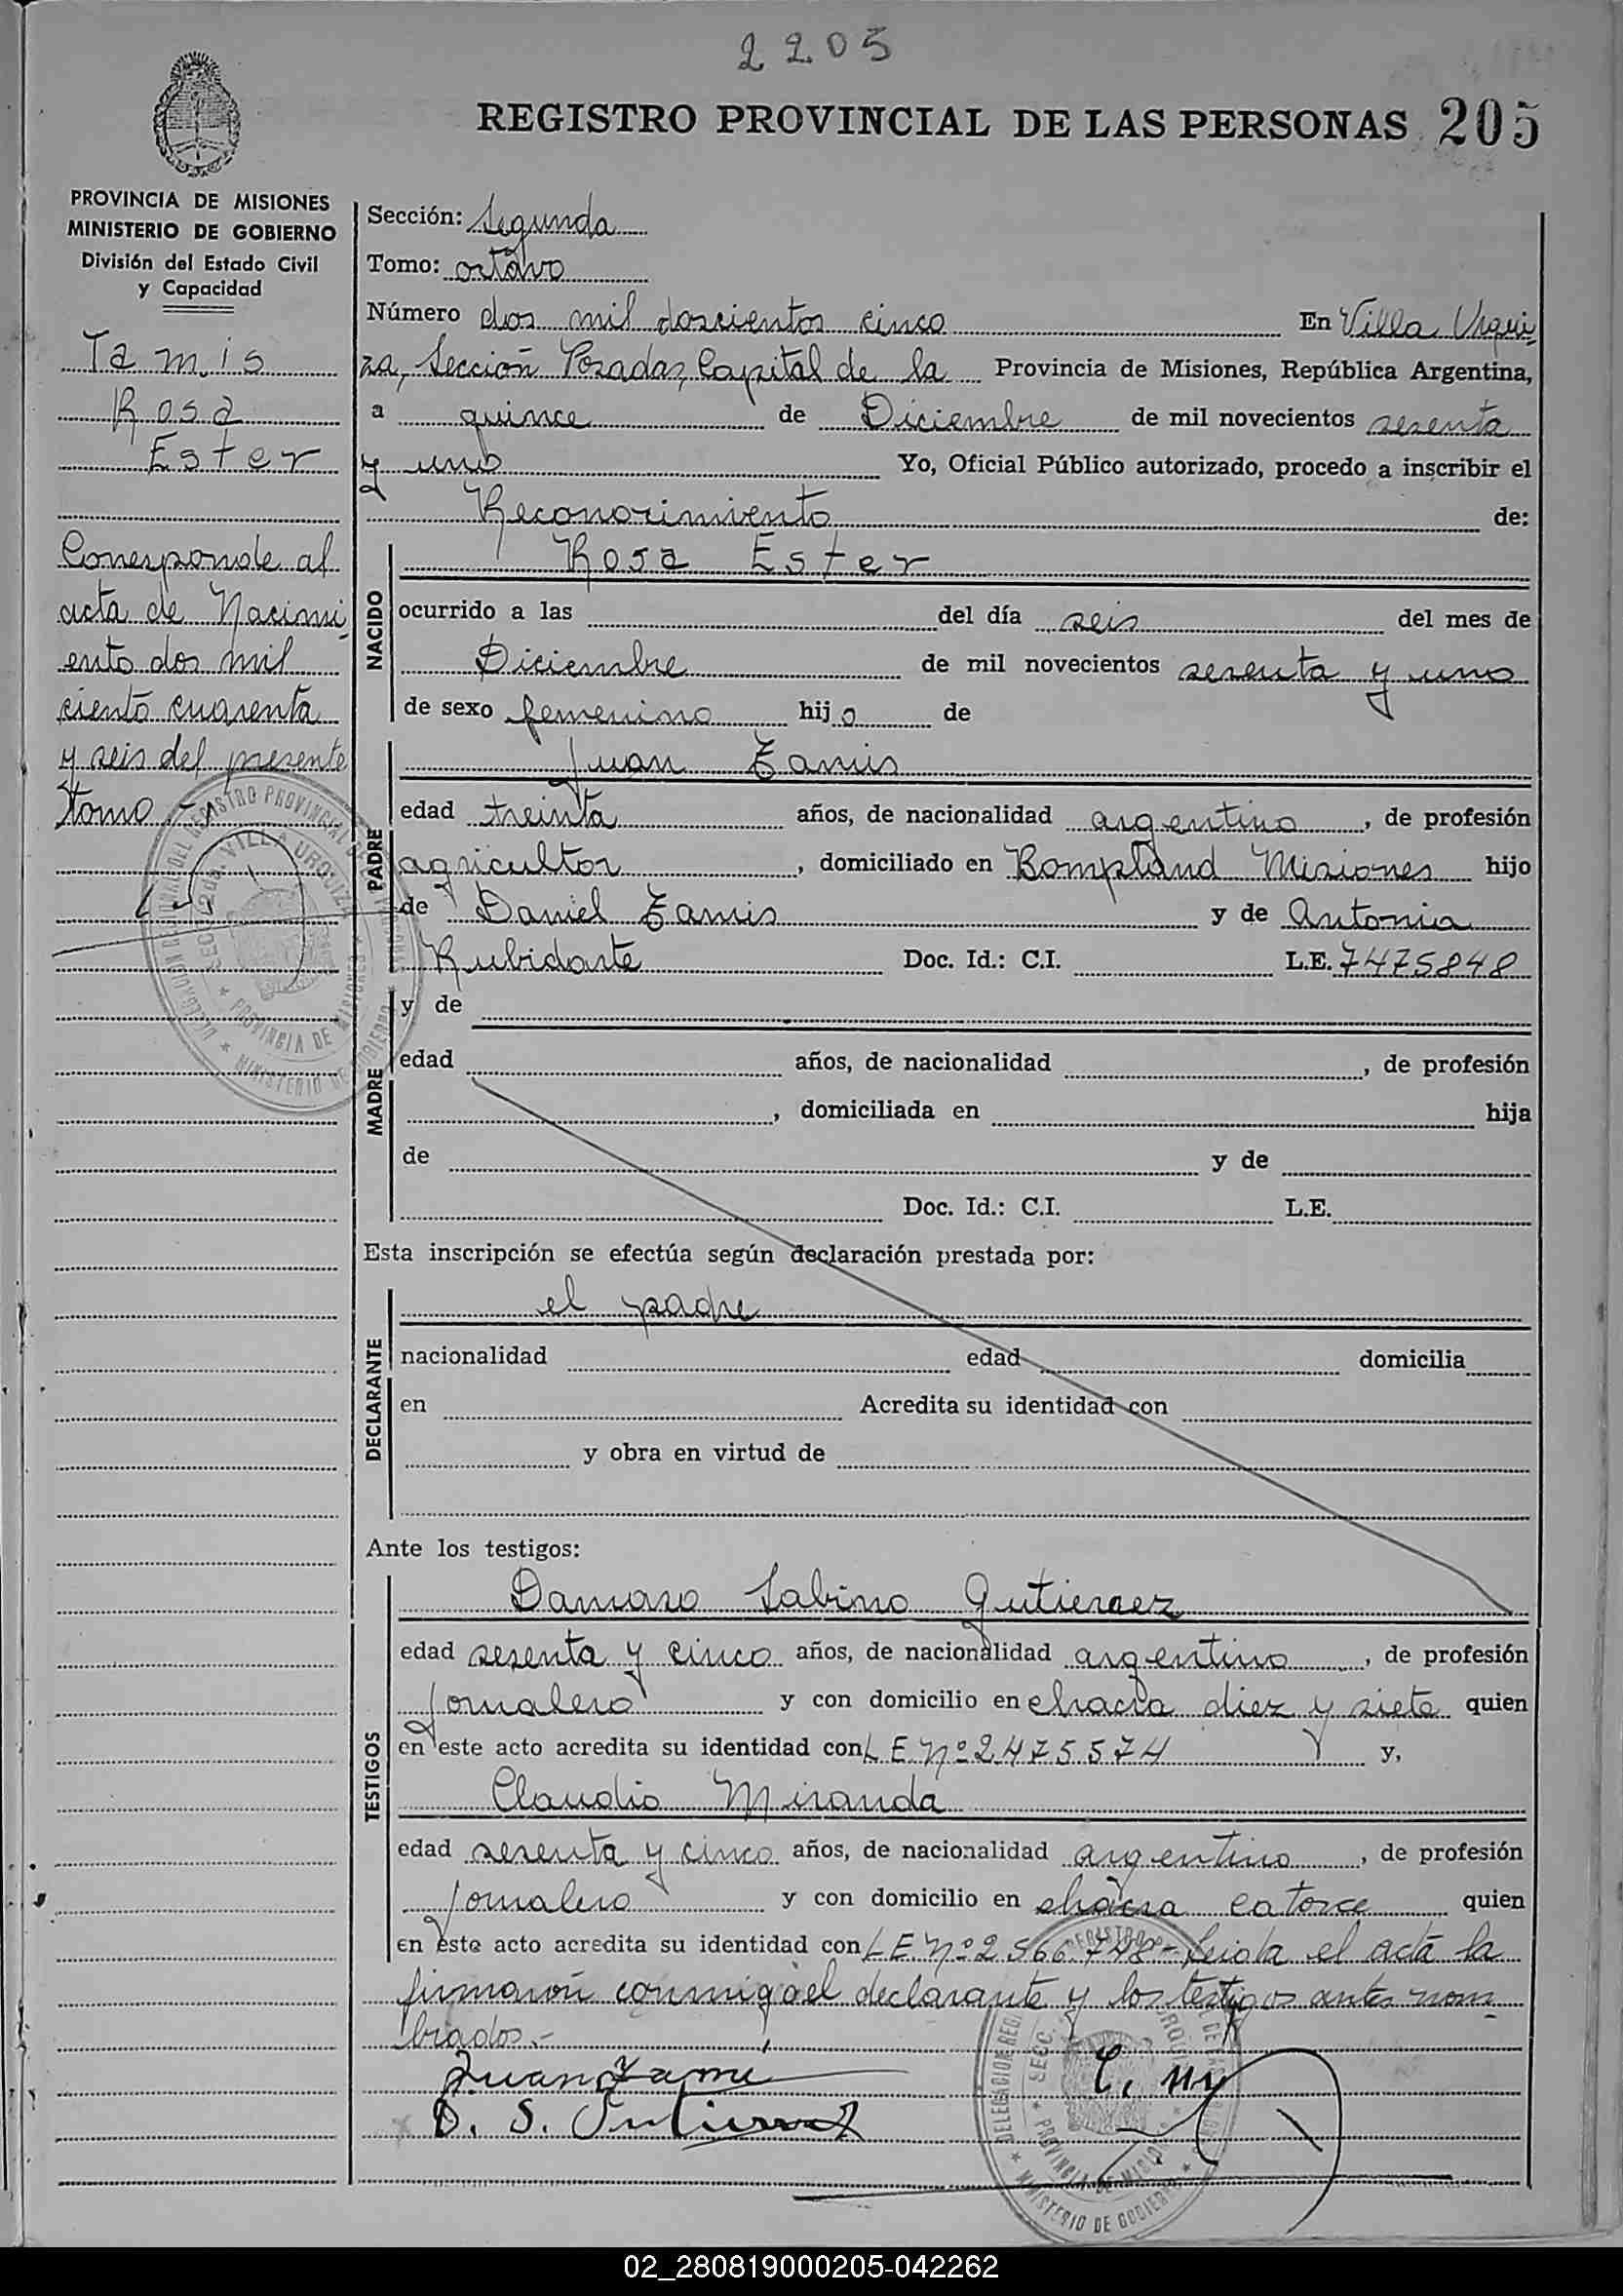 2205
REGISTRO PROVINCIAL DE LAS PERSONAS 205
PROVINCIA DE MISIONES
MINISTERIO DE GOBIERNO
División del Estado Civil
y Capacidad
Tamis
Rosa
Ester
Corresponde al
acta de Nacimi
ento dos mil
ciento cuarenta
y seis del presente
tomo.-
Sección: Segunda
Tomo: octavo
Número dos mil doscientos cinco En Villa Urqui
za, Sección Posadas, Capital de la Provincia de Misiones, República Argentina,
a quince de Diciembre de mil novecientos sesenta
y uno Yo, Oficial Público autorizado, procedo a inscribir el
Reconocimiento de:
NACIDO
Rosa Ester
ocurrido a las del día seis del mes de
Diciembre de mil novecientos sesenta y uno
de sexo femenino hijo de
PADRE
Juan Zamis
edad treinta años, de nacionalidad argentino, de profesión
agricultor, domiciliado en Bompland Misiones hijo
de Daniel Zamis y de Antonia
Rubidarte Doc. Id.: C.I. L.E. 7475848
MADRE
y de
edad años, de nacionalidad , de profesión
, domiciliada en hija
de y de
Doc. Id.: C.I. L.E.
Esta inscripción se efectúa según declaración prestada por:
DECLARANTE
el padre
nacionalidad edad domicilia
en Acredita su identidad con
y obra en virtud de
Ante los testigos:
TESTIGOS
Damaso Sabino Gutierrez
edad sesenta y cinco años, de nacionalidad argentino, de profesión
jornalero y con domicilio en chacra diez y siete quien
en este acto acredita su identidad con L E Nº 2475574 y,
Claudio Miranda
edad sesenta y cinco años, de nacionalidad argentino, de profesión
jornalero y con domicilio en chacra catorce quien
en este acto acredita su identidad con L E Nº 2566748- Leida el acta la
firmaron conmigo el declarante y los testigos antes nom
brados.-
Juan Zami
D. S. Gutierrez
02_280819000205-042262